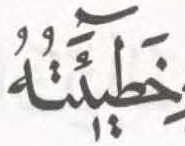 خَطِيٓـَٔتُهُۥ